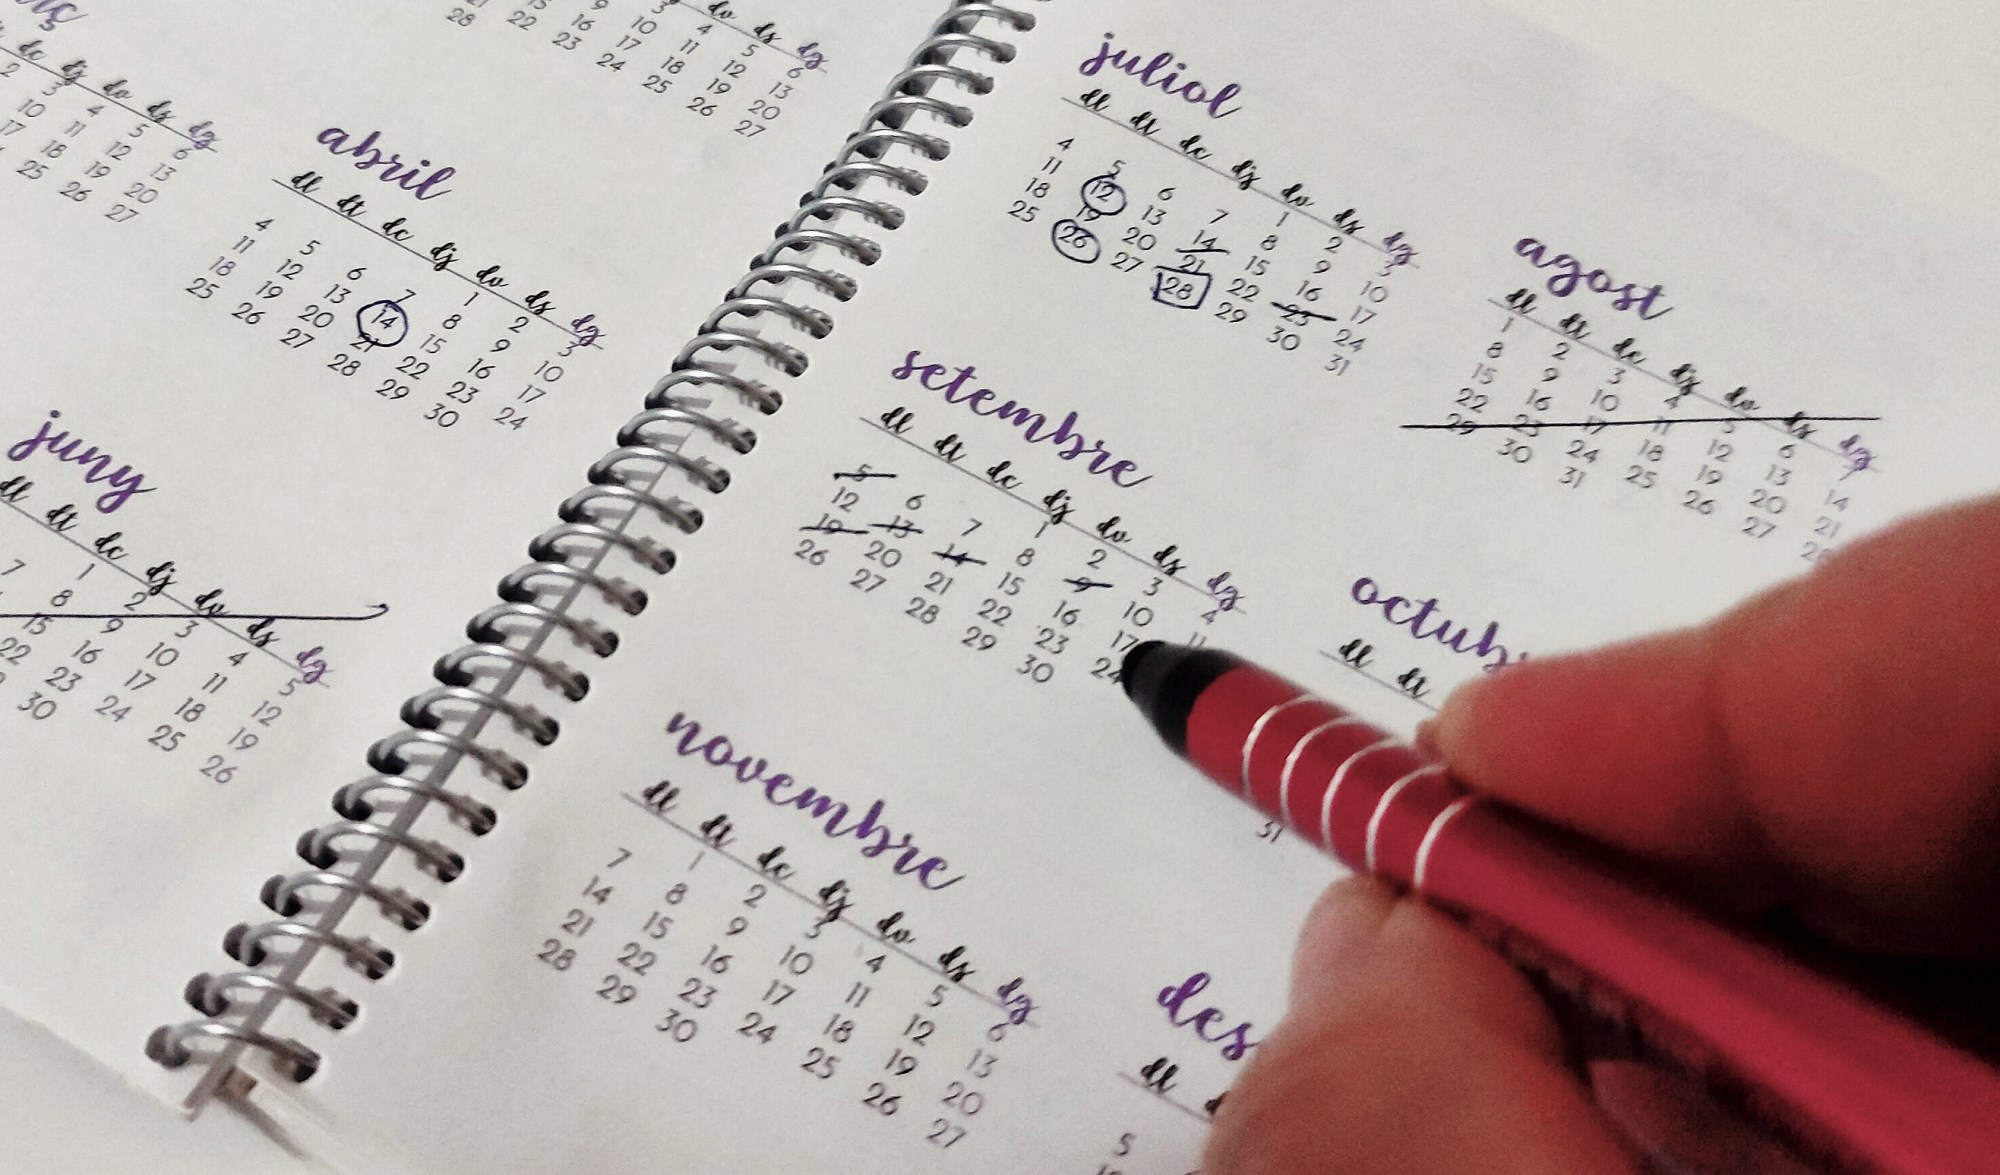 dv ds dg
3 4 5 6
9 10 11 12 13
15 16 17 18 19 20
21 22 23 24 25 26 27
28
dc dj dv ds dg
2 3 4 5 6
10 11 12 13
17 18 19 20
25 26 27
abril
dl dt dc dj dv ds dg
1 2 3
4 5 6 7 8 9 10
11 12 13 14 15 16 17
18 19 20 21 22 23 24
25 26 27 28 29 30
juny
dl dt dc dj dv ds dg
1 2 3 4 5
7 8 9 10 11 12
15 16 17 18 19
22 23 24 25 26
30
juliol
dl dt dc dj dv ds dg
1 2 3
4 5 6 7 8 9 10
11 12 13 14 15 16 17
18 19 20 21 22 23 24
25 26 27 28 29 30 31
agost
dl dt dc dj dv ds dg
1 2 3 4 5 6 7
8 9 10 11 12 13 14
15 16 17 18 19 20 21
22 23 24 25 26 27 28
29 30 31
setembre
dl dt dc dj dv ds dg
1 2 3 4
5 6 7 8 9 10 11
12 13 14 15 16 17
19 20 21 22 23 24
26 27 28 29 30
octub
dl dt
31
novembre
dl dt dc dj dv ds dg
1 2 3 4 5 6
7 8 9 10 11 12 13
14 15 16 17 18 19 20
21 22 23 24 25 26 27
28 29 30
des
dl
5